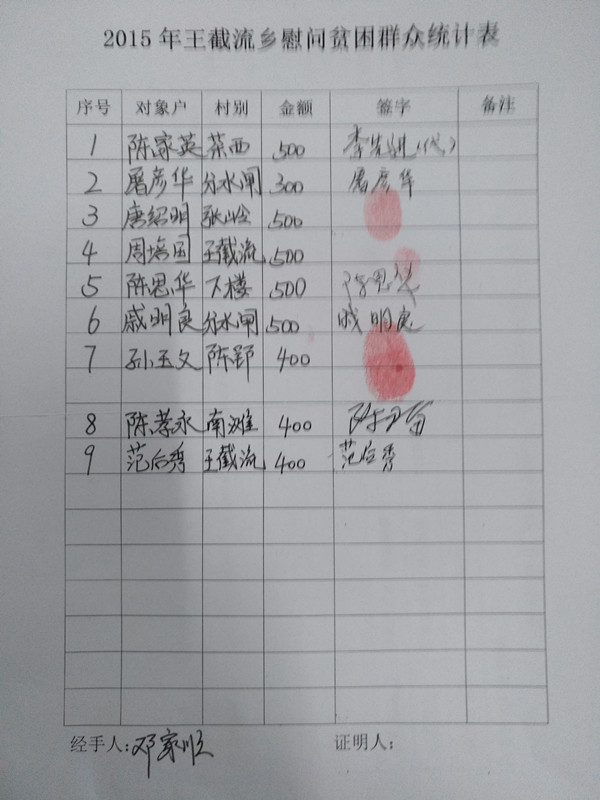 2015年王截流乡慰问贫困群众统计表
序号 对象户 村别 金额 签字 备注
1 陈家英 菜西 500 李先进(代)
2 屠彦华 分水闸 300 屠彦华
3 唐绍明 张岭 500
4 周培国 王截流 500
5 陈思华 下楼 500 陈思华
6 戚明良 分水闸 500 戚明良
7 孙玉文 陈郢 400
8 陈孝永 南滩 400
9 范后秀 王截流 400 范后秀
经手人:邓家顺 证明人: